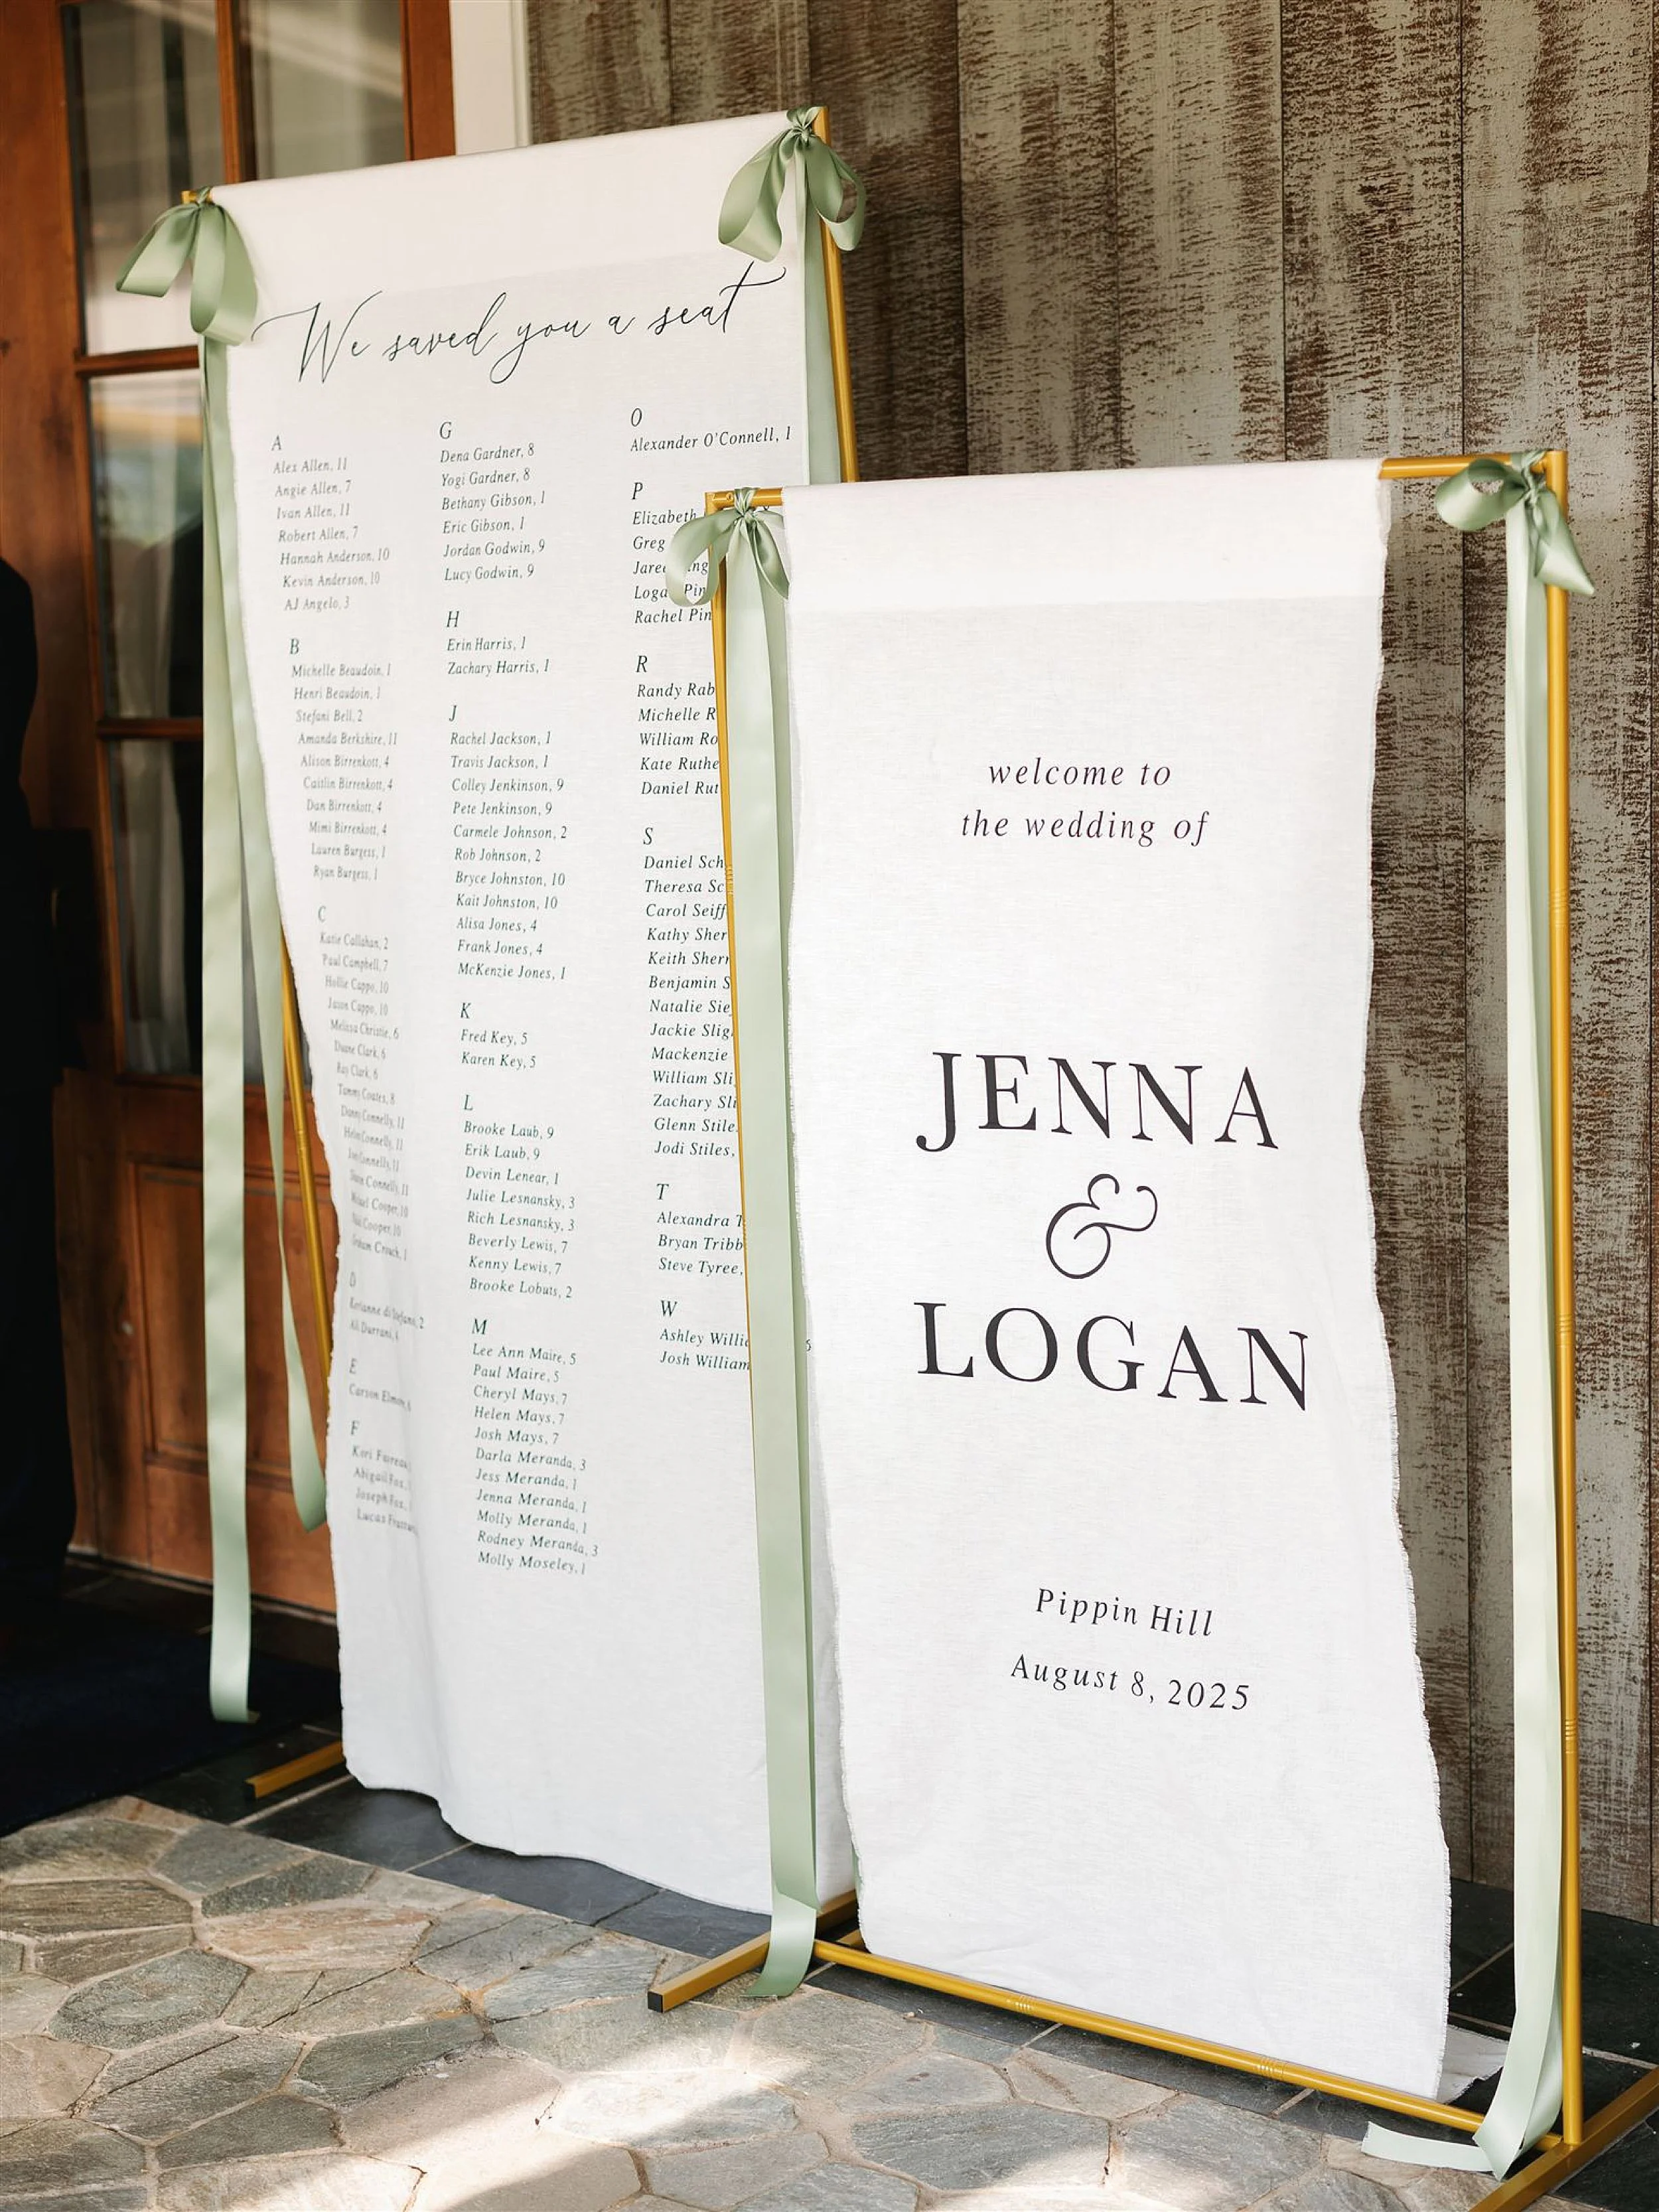 We saved you a seat
A
Alex Allen, 11
Angie Allen, 7
Ivan Allen, 11
Robert Allen, 7
Hannah Anderson, 10
Kevin Anderson, 10
AJ Angelo, 3
B
Michelle Beaudoin, 1
Henri Beaudoin, 1
Stefani Bell, 2
Amanda Berkshire, 11
Alison Birrenkott, 4
Caitlin Birrenkott, 4
Dan Birrenkott, 4
Mimi Birrenkott, 4
Lauren Burgess, 1
Ryan Burgess, 1
C
Katie Callahan, 2
Paul Campbell, 7
Hollie Cappo, 10
Jason Cappo, 10
Melissa Christie, 6
Duane Clark, 6
Ray Clark, 6
Tammy Coates, 8
Danny Connelly, 11
Connelly, 11
Connelly, 11
Connelly, 11
Cooper, 10
Cooper, 10
Crouch, 1
D
Ali Durrani, 4
E
Carson
F
Kori
Abigail Fox,
Joseph Fox,
Lucas
G
Dena Gardner, 8
Yogi Gardner, 8
Bethany Gibson, 1
Eric Gibson, 1
Jordan Godwin, 9
Lucy Godwin, 9
H
Erin Harris, 1
Zachary Harris, 1
J
Rachel Jackson, 1
Travis Jackson, 1
Colley Jenkinson, 9
Pete Jenkinson, 9
Carmele Johnson, 2
Rob Johnson, 2
Bryce Johnston, 10
Kait Johnston, 10
Alisa Jones, 4
Frank Jones, 4
McKenzie Jones, 1
K
Fred Key, 5
Karen Key, 5
L
Brooke Laub, 9
Erik Laub, 9
Devin Lenear, 1
Julie Lesnansky, 3
Rich Lesnansky, 3
Beverly Lewis, 7
Kenny Lewis, 7
Brooke Lobuts, 2
M
Lee Ann Maire, 5
Paul Maire, 5
Cheryl Mays, 7
Helen Mays, 7
Josh Mays, 7
Darla Meranda, 3
Jess Meranda, 1
Jenna Meranda, 1
Molly Meranda, 1
Rodney Meranda, 3
Molly Moseley, 1
O
Alexander O'Connell, 1
P
Elizabeth
Greg
Rachel Pin
R
Randy Rab
Michelle R
William Ro
Kate Ruthe
Daniel Rut
S
Daniel Sch
Theresa Sc
Carol Seiff
Kathy Sher
Keith Sherr
Benjamin S
Natalie Sie
Jackie Slig
Mackenzie
William Sli
Zachary Sli
Glenn Stile
Jodi Stiles,
T
Alexandra T
Bryan Tribb
Steve Tyree,
W
Ashley Willi
Josh William
welcome to
the wedding of
JENNA
&
LOGAN
Pippin Hill
August 8, 2025